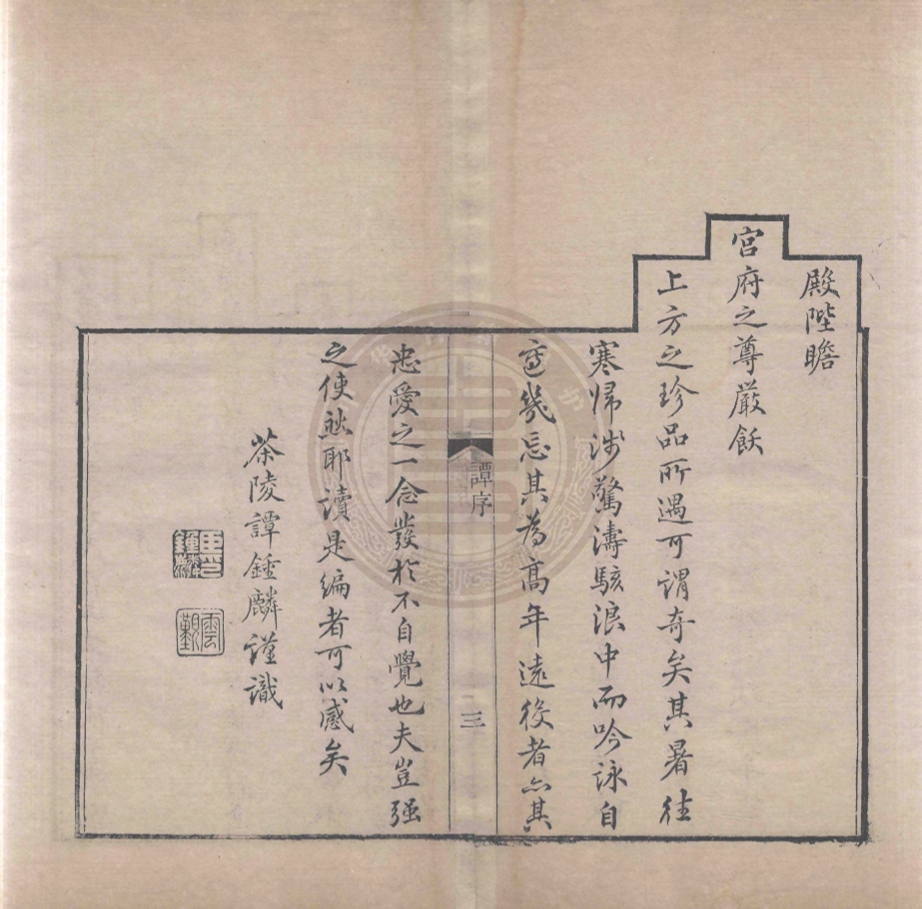 殿陛瞻
宮府之尊嚴飫
上方之珍品所遇可謂奇矣其暑往
寒歸涉驚濤駭浪中而吟詠自
適幾忘其為高年遠役者亦其
譚序
三
忠愛之一念發於不自覺也夫豈強
之使然耶讀是編者可以感矣
茶陵譚鍾麟謹識